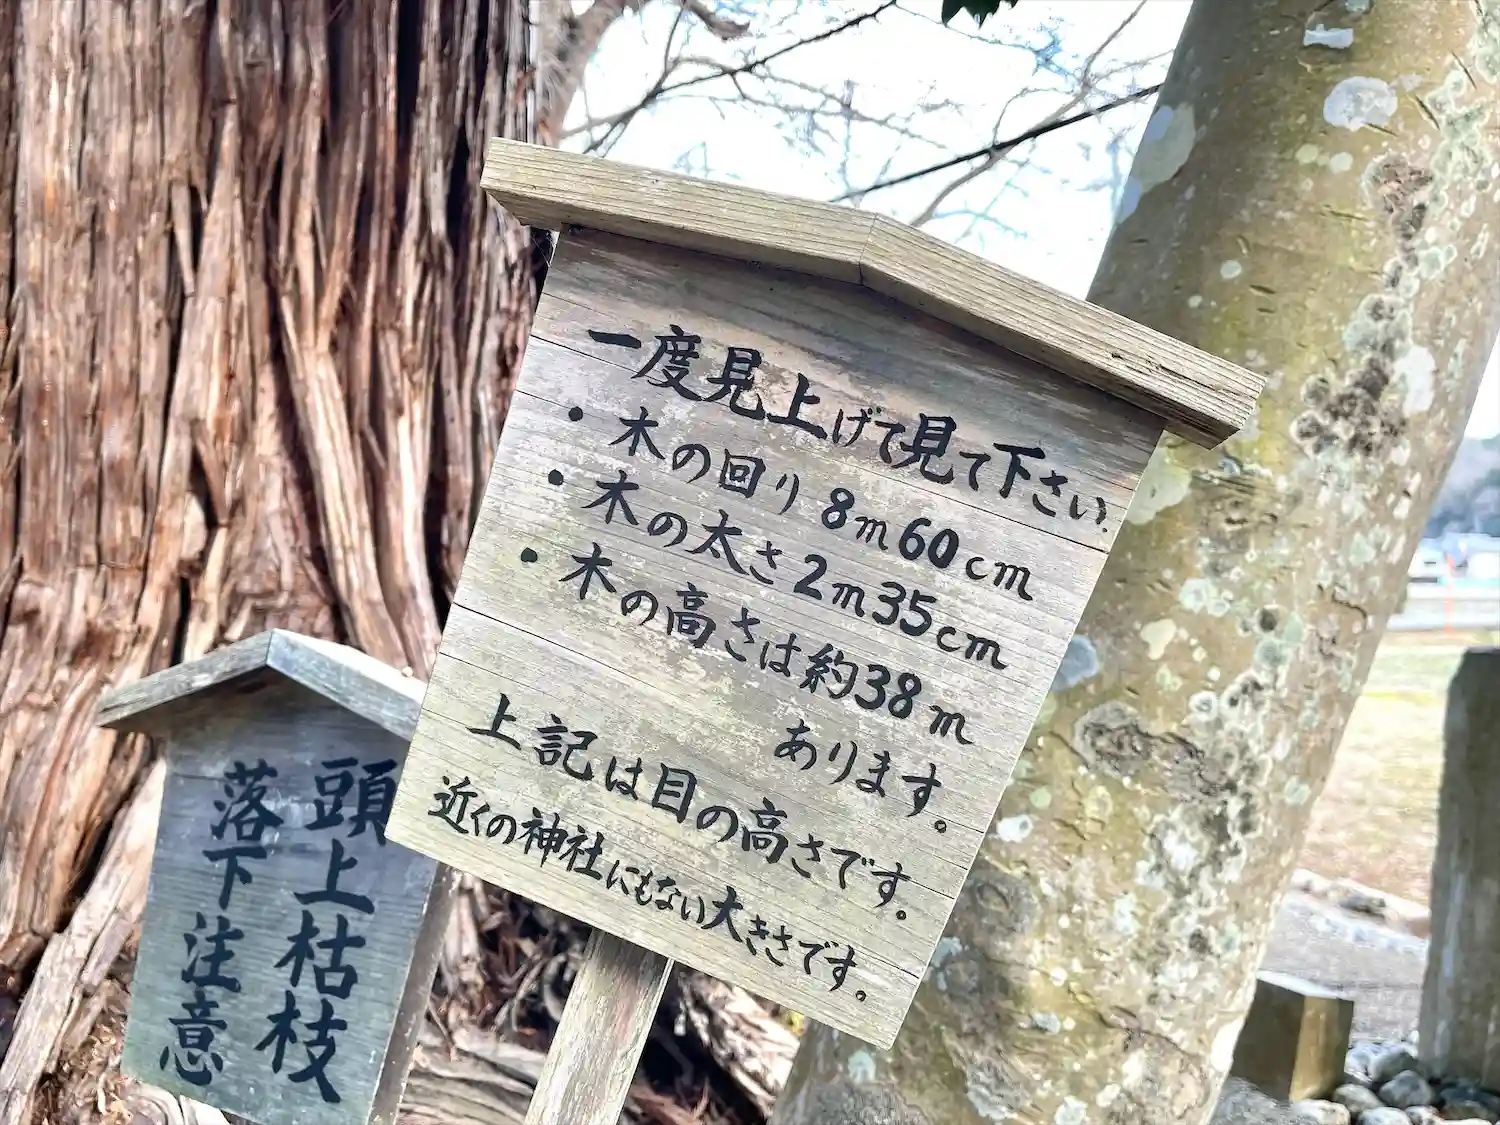 一度見上げて見て下さい.
・木の回り8m60cm
・木の太さ2m35cm
・木の高さは約38m
あります。
上記は目の高さです。
近くの神社にもない大きさです。
頭上枯枝
落下注意